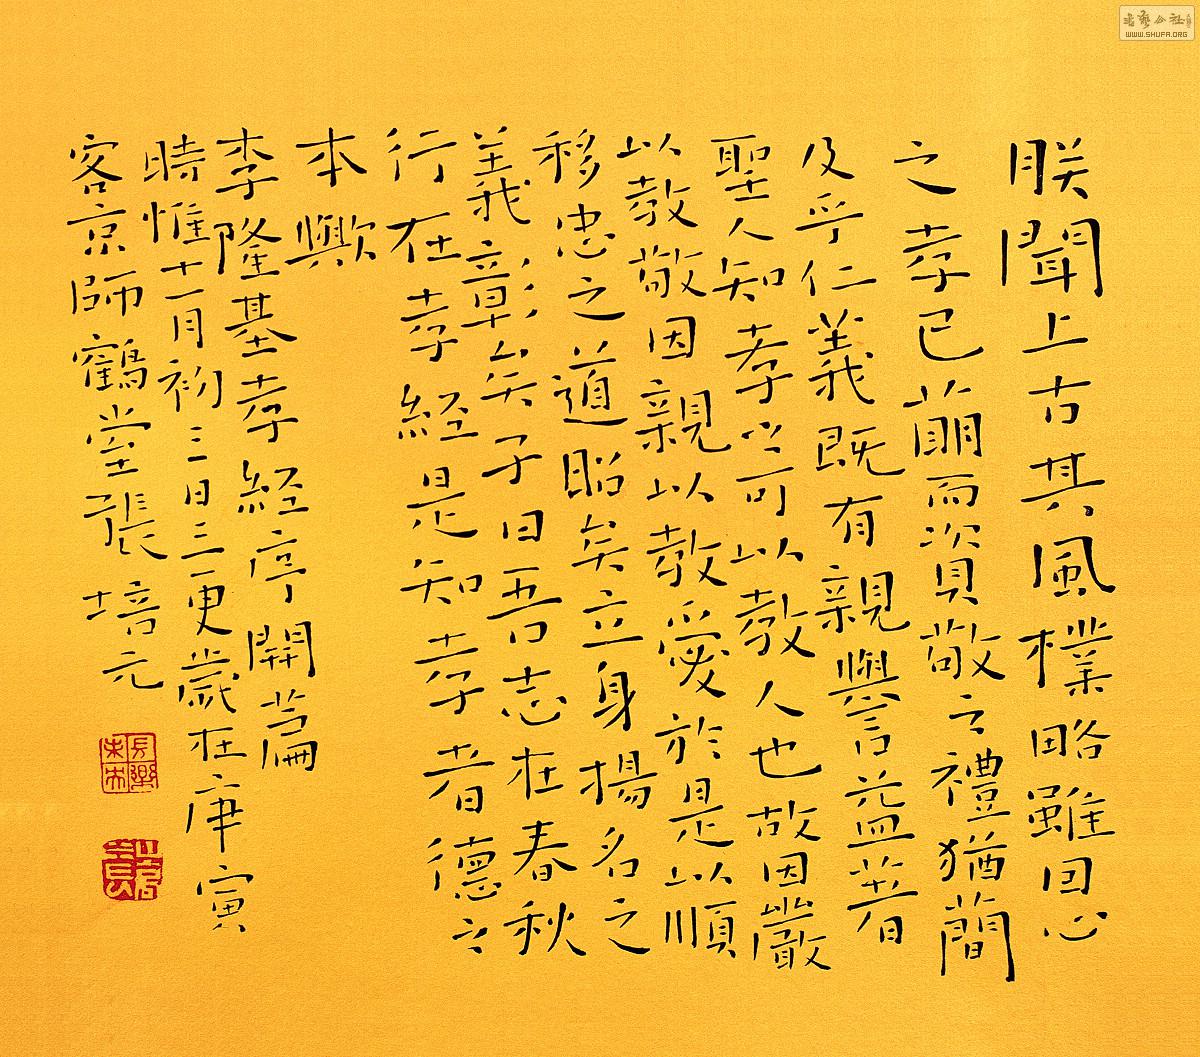 朕聞上古其風樸略雖因心
之孝已萌而資敬之禮猶簡
及乎仁義既有親譽益著
聖人知孝之可以教人也故因嚴
以教敬因親以教愛於是以順
移忠之道昭矣立身揚名之
義彰矣子曰吾志在春秋
行在孝經是知孝者德之
本歟
李隆基孝經序開篇
時惟十一月初三日三更歲在庚寅
客京師鶴堂張培元
長樂未央
書藝公社
WWW.SHUFA.ORG